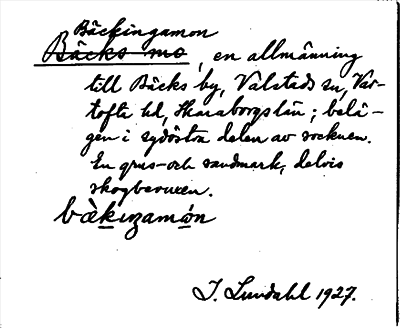 Bäckingamon
Bäcks mo, en allmänning
till Bäcks by, Valstads sn, Var-
tofta hd, Skaraborgs län; belä-
gen i sydöstra delen av socknen.
En grus- och sandmark, delvis
skogbevuxen.
bàkiŋamón
I. Lundahl 1927.